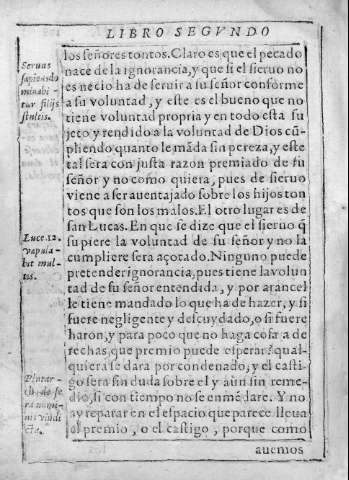 LIBRO SEGVNDO
los señores tontos. Claro es que el pecado
nace de la ignorancia, y que si el sieruo no
es necio ha de seruir a su señor conforme
a su voluntad, y este es el bueno que no
tiene voluntad propria y en todo està su
jeto y rendido a la voluntad de Dios cũ-
pliendo quanto le mãda sin pereza, y este
tal sera con justa razon premiado de su
señor y no como quiera, pues de sieruo
viene a ser auentajado sobre los hijos ton
tos que son los malos. El otro lugar es de
san Lucas. En que se dize que el sieruo q̃
supiere la voluntad de su señor y no la
cumpliere sera açotado. Ninguno puede
pretender ignorancia, pues tiene la volun
tad de su señor entendida, y por arancel
le tiene mandado lo que ha de hazer, y si
fuere negligente y descuydado, o si fuere
haron, y para poco que no haga cosa a de
rechas, que premio puede esperar? qual-
quiera se dara por condenado, y el casti
go sera sin duda sobre el y aun sin reme-
dio, si con tiempo no se enmẽdare. Y no
ay reparar en el espacio que parece lleua
el premio, o el castigo, porque como
auemos
Seruus
sapiens do
minabi-
tur filijs
stultis.
Luce. 12.
Vapula-
bit mul-
tis.
Plutar-